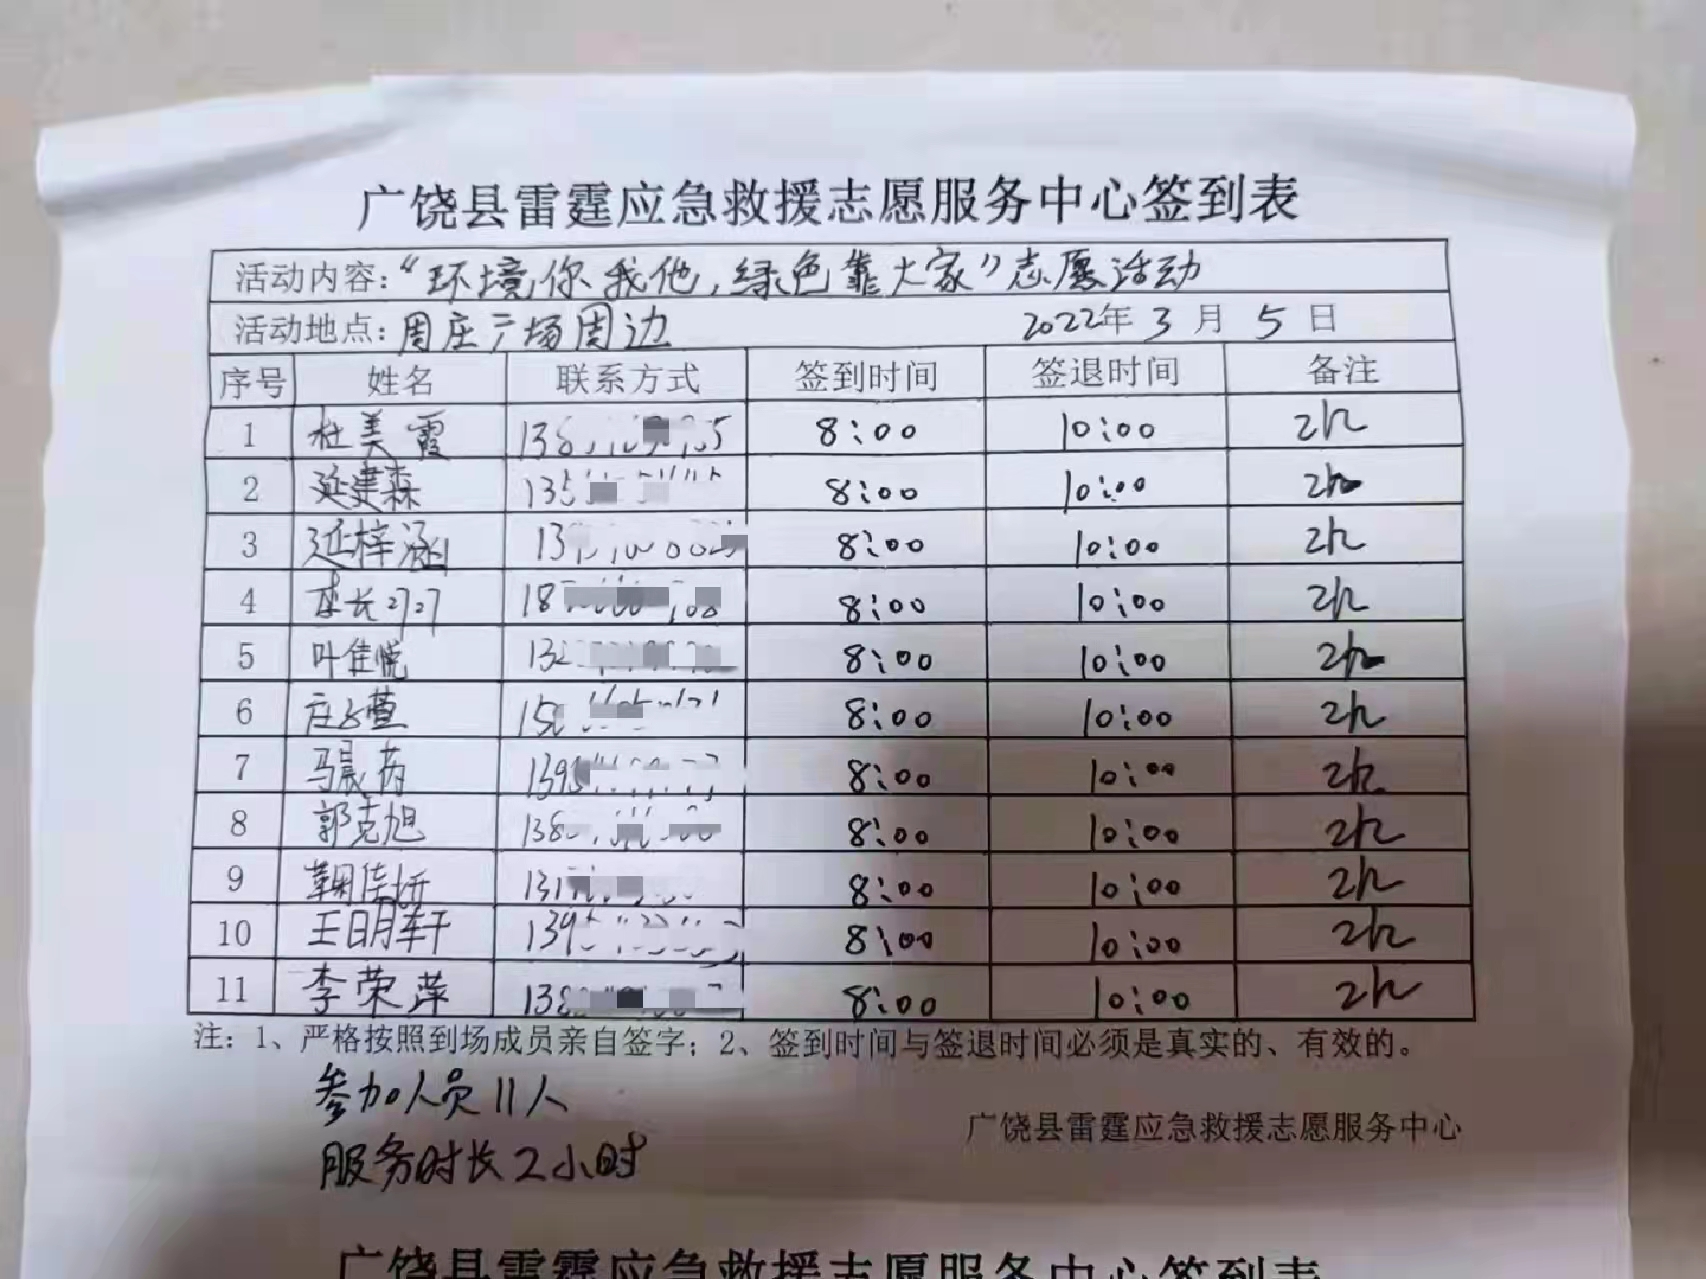 广饶县雷霆应急救援志愿服务中心签到表
活动内容:“环境你我他,绿色靠大家”志愿活动
活动地点:周庄广场周边 2022年 3 月 5 日
序号 姓名 联系方式 签到时间 签退时间 备注
1 杜美霞 8:00 10:00 2h
2 延建森 8:00 10:00 2h
3 延梓涵 8:00 10:00 2h
4 李长 8:00 10:00 2h
5 叶佳悦 8:00 10:00 2h
6 庄 萱 8:00 10:00 2h
7 马晨芮 8:00 10:00 2h
8 郭克旭 8:00 10:00 2h
9 鞠佳妍 8:00 10:00 2h
10 王明轩 8:00 10:00 2h
11 李荣萍 8:00 10:00 2h
注:1、严格按照到场成员亲自签字;2、签到时间与签退时间必须是真实的、有效的。
参加人员11人
广饶县雷霆应急救援志愿服务中心
服务时长2小时
广饶县雷霆应急救援志愿服务中心签到表